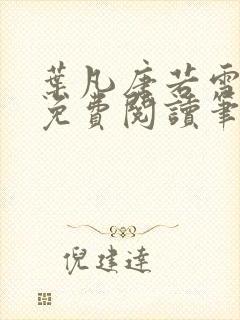 葉凡唐若雪
免費閱讀筆
倪建達